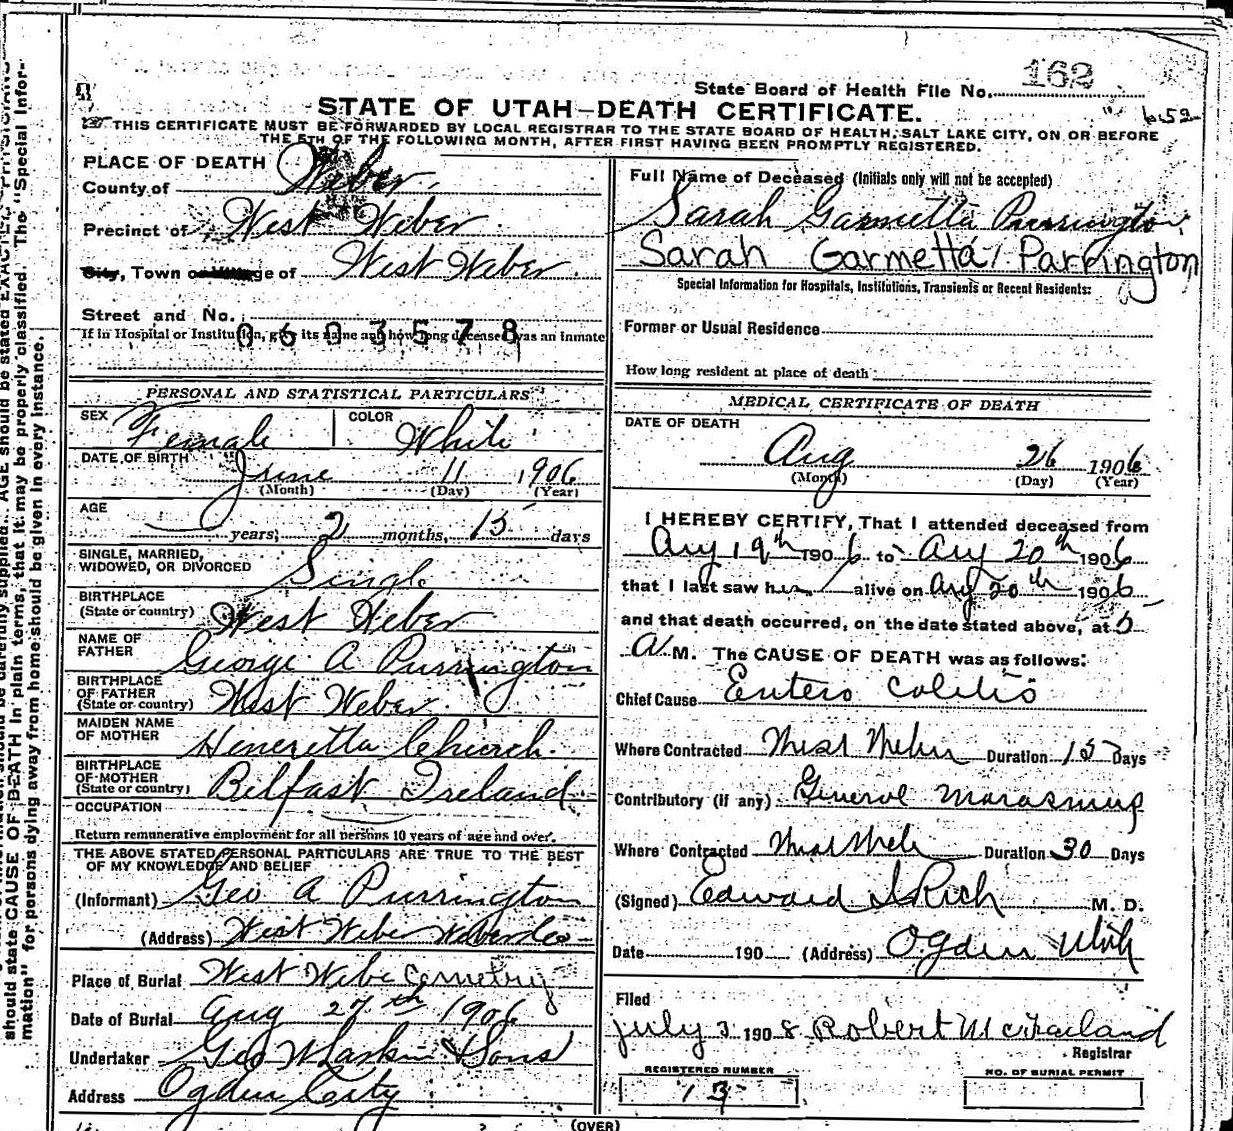 State Board of Health File No. 162
STATE OF UTAH—DEATH CERTIFICATE.
THIS CERTIFICATE MUST BE FORWARDED BY LOCAL REGISTRAR TO THE STATE BOARD OF HEALTH, SALT LAKE CITY, ON OR BEFORE
THE 5TH OF THE FOLLOWING MONTH, AFTER FIRST HAVING BEEN PROMPTLY REGISTERED.
PLACE OF DEATH
County of Weber
Precinct of West Weber
City, Town or Village of West Weber
Street and No.
If in Hospital or Institution, give its name and how long deceased was an inmate
0603578
PERSONAL AND STATISTICAL PARTICULARS
SEX Female COLOR White
DATE OF BIRTH June 11 1906
(Month) (Day) (Year)
AGE
years, 2 months, 15 days
SINGLE, MARRIED,
WIDOWED, OR DIVORCED Single
BIRTHPLACE
(State or country) West Weber
NAME OF
FATHER George A Purrington
BIRTHPLACE
OF FATHER
(State or country) West Weber
MAIDEN NAME
OF MOTHER Hineretta Church
BIRTHPLACE
OF MOTHER
(State or country) Belfast Ireland
OCCUPATION
Return remunerative employment for all persons 10 years of age and over.
THE ABOVE STATED PERSONAL PARTICULARS ARE TRUE TO THE BEST
OF MY KNOWLEDGE AND BELIEF
(Informant) Geo A Purrington
(Address) West Weber Weber Co
Place of Burial West Weber Cemetry
Date of Burial Aug 27th 1906
Undertaker Geo W Larkin & Sons
Address Ogden City
Full Name of Deceased (Initials only will not be accepted)
Sarah Garmetta Purrington
Sarah Garmetta Parrington
Special Information for Hospitals, Institutions, Transients or Recent Residents:
Former or Usual Residence
How long resident at place of death
MEDICAL CERTIFICATE OF DEATH
DATE OF DEATH
Aug 26 1906
(Month) (Day) (Year)
I HEREBY CERTIFY, That I attended deceased from
Aug 19th 1906 to Aug 20th 1906
that I last saw her alive on Aug 20th 1906
and that death occurred, on the date stated above, at 5
A M. The CAUSE OF DEATH was as follows:
Chief Cause Entero Colitis
Where Contracted West Weber Duration 15 Days
Contributory (if any) General Marasmus
Where Contracted West Web Duration 30 Days
(Signed) Edward I Rich M. D.
Date 190 (Address) Ogden Utah
Filed
July 3 1908 Robert McFarland
Registrar
REGISTERED NUMBER
13
NO. OF BURIAL PERMIT
(OVER)
should state CAUSE OF DEATH in plain terms, that it may be properly classified. The "Special Infor-
mation" for persons dying away from home should be given in every instance.